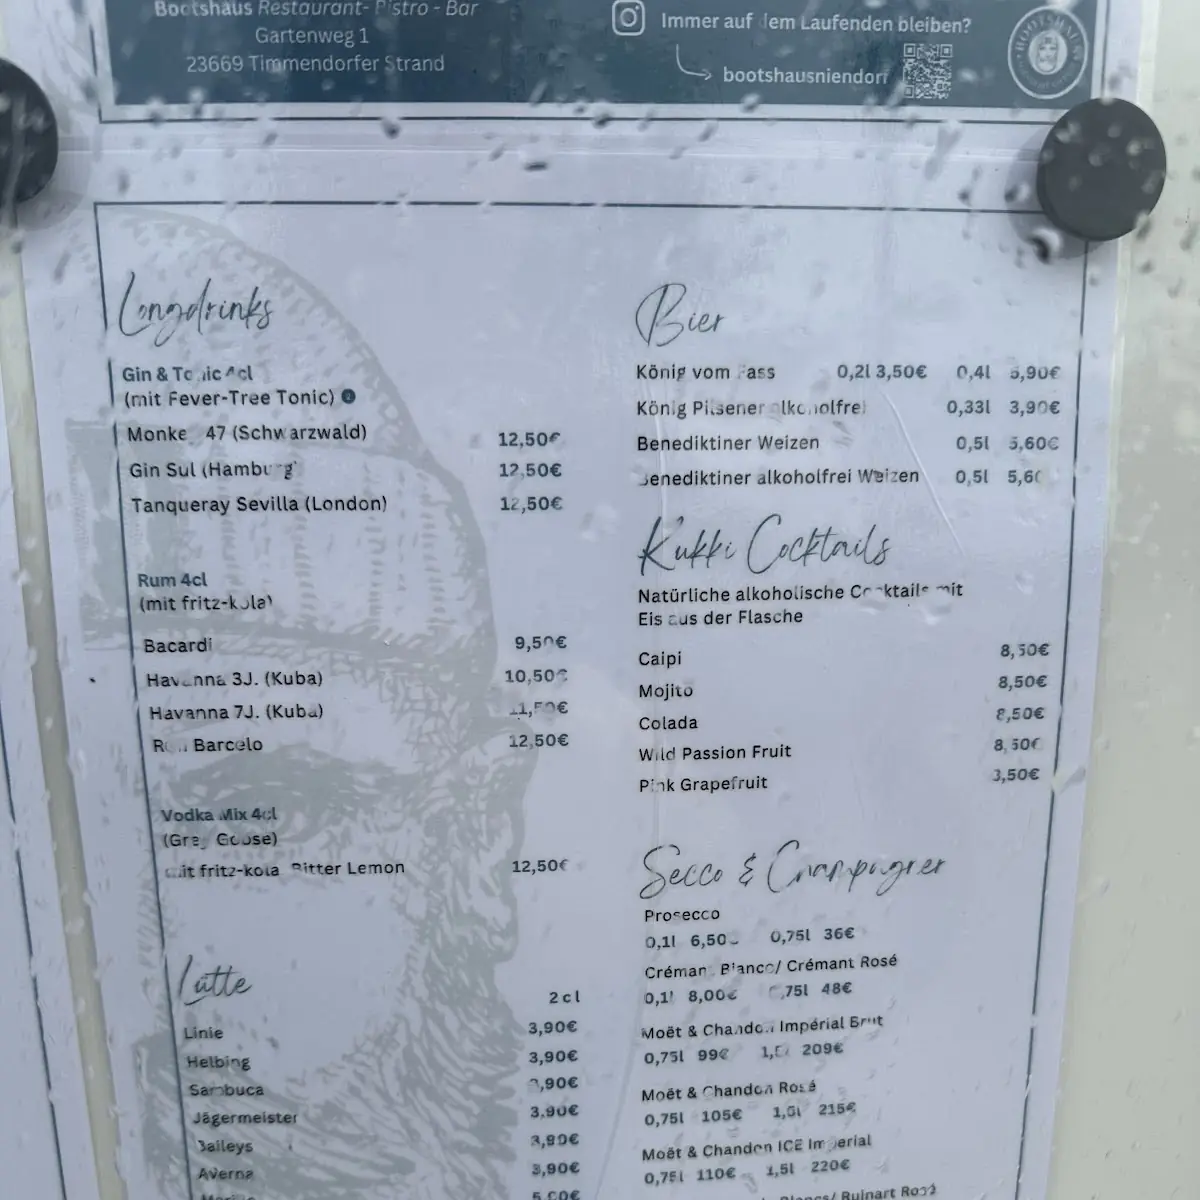 Bootshaus Restaurant- Bistro - Bar
Gartenweg 1
23669 Timmendorfer Strand
Immer auf dem Laufenden bleiben?
bootshausniendorf
Longdrinks
Gin & Tonic 4cl
(mit Fever-Tree Tonic)
Monkey 47 (Schwarzwald) 12,50€
Gin Sul (Hamburg) 12,50€
Tanqueray Sevilla (London) 12,50€
Rum 4cl
(mit fritz-kola)
Bacardi 9,50€
Havanna 3J. (Kuba) 10,50€
Havanna 7J. (Kuba) 11,50€
Ron Barcelo 12,50€
Vodka Mix 4cl
(Grey Goose)
mit fritz-kola Bitter Lemon 12,50€
Lütte
2cl
Linie 3,90€
Helbing 3,90€
Sambuca 3,90€
Jägermeister 3,90€
Baileys 3,90€
Averna 3,90€
Bier
König vom Fass 0,2l 3,50€ 0,4l 5,90€
König Pilsener alkoholfrei 0,33l 3,90€
Benediktiner Weizen 0,5l 5,60€
Benediktiner alkoholfrei Weizen 0,5l 5,60
Kukki Cocktails
Natürliche alkoholische Cocktails mit
Eis aus der Flasche
Caipi 8,50€
Mojito 8,50€
Colada 8,50€
Wild Passion Fruit 8,50€
Pink Grapefruit 8,50€
Secco & Champagner
Prosecco
0,1l 6,50€ 0,75l 36€
Crémant Blanco/ Crémant Rosé
0,1l 8,00€ 0,75l 48€
Moët & Chandon Impérial Brut
0,75l 99€ 1,5l 209€
Moët & Chandon Rosé
0,75l 105€ 1,5l 215€
Moët & Chandon ICE Imperial
0,75l 110€ 1,5l 220€
Ruinart Rosé